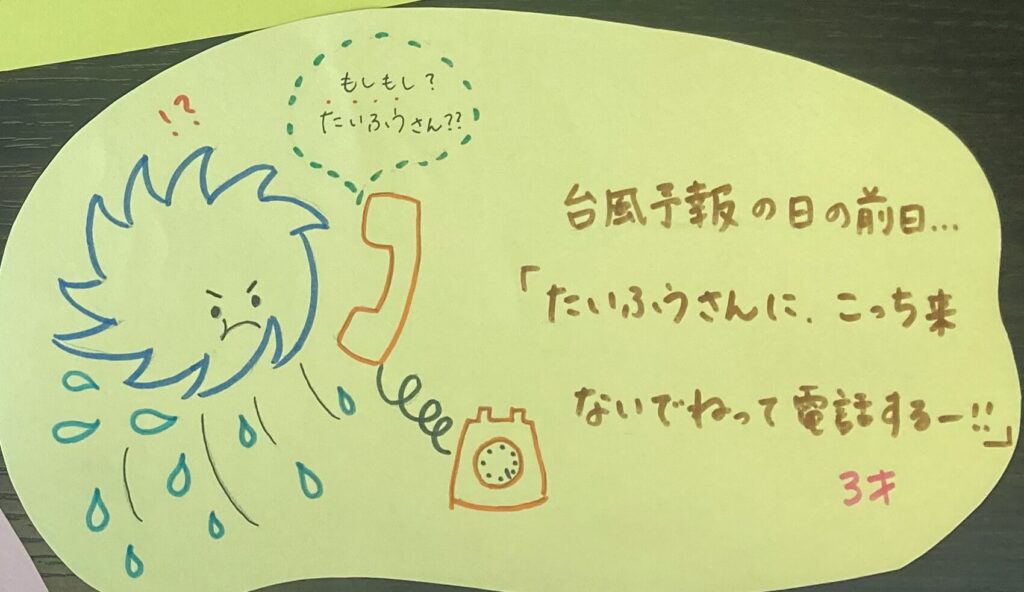 !?
もしもし?
たいふうさん??
台風予報の日の前日...
「たいふうさんに、こっち来
ないでねって電話するー!!」
3才